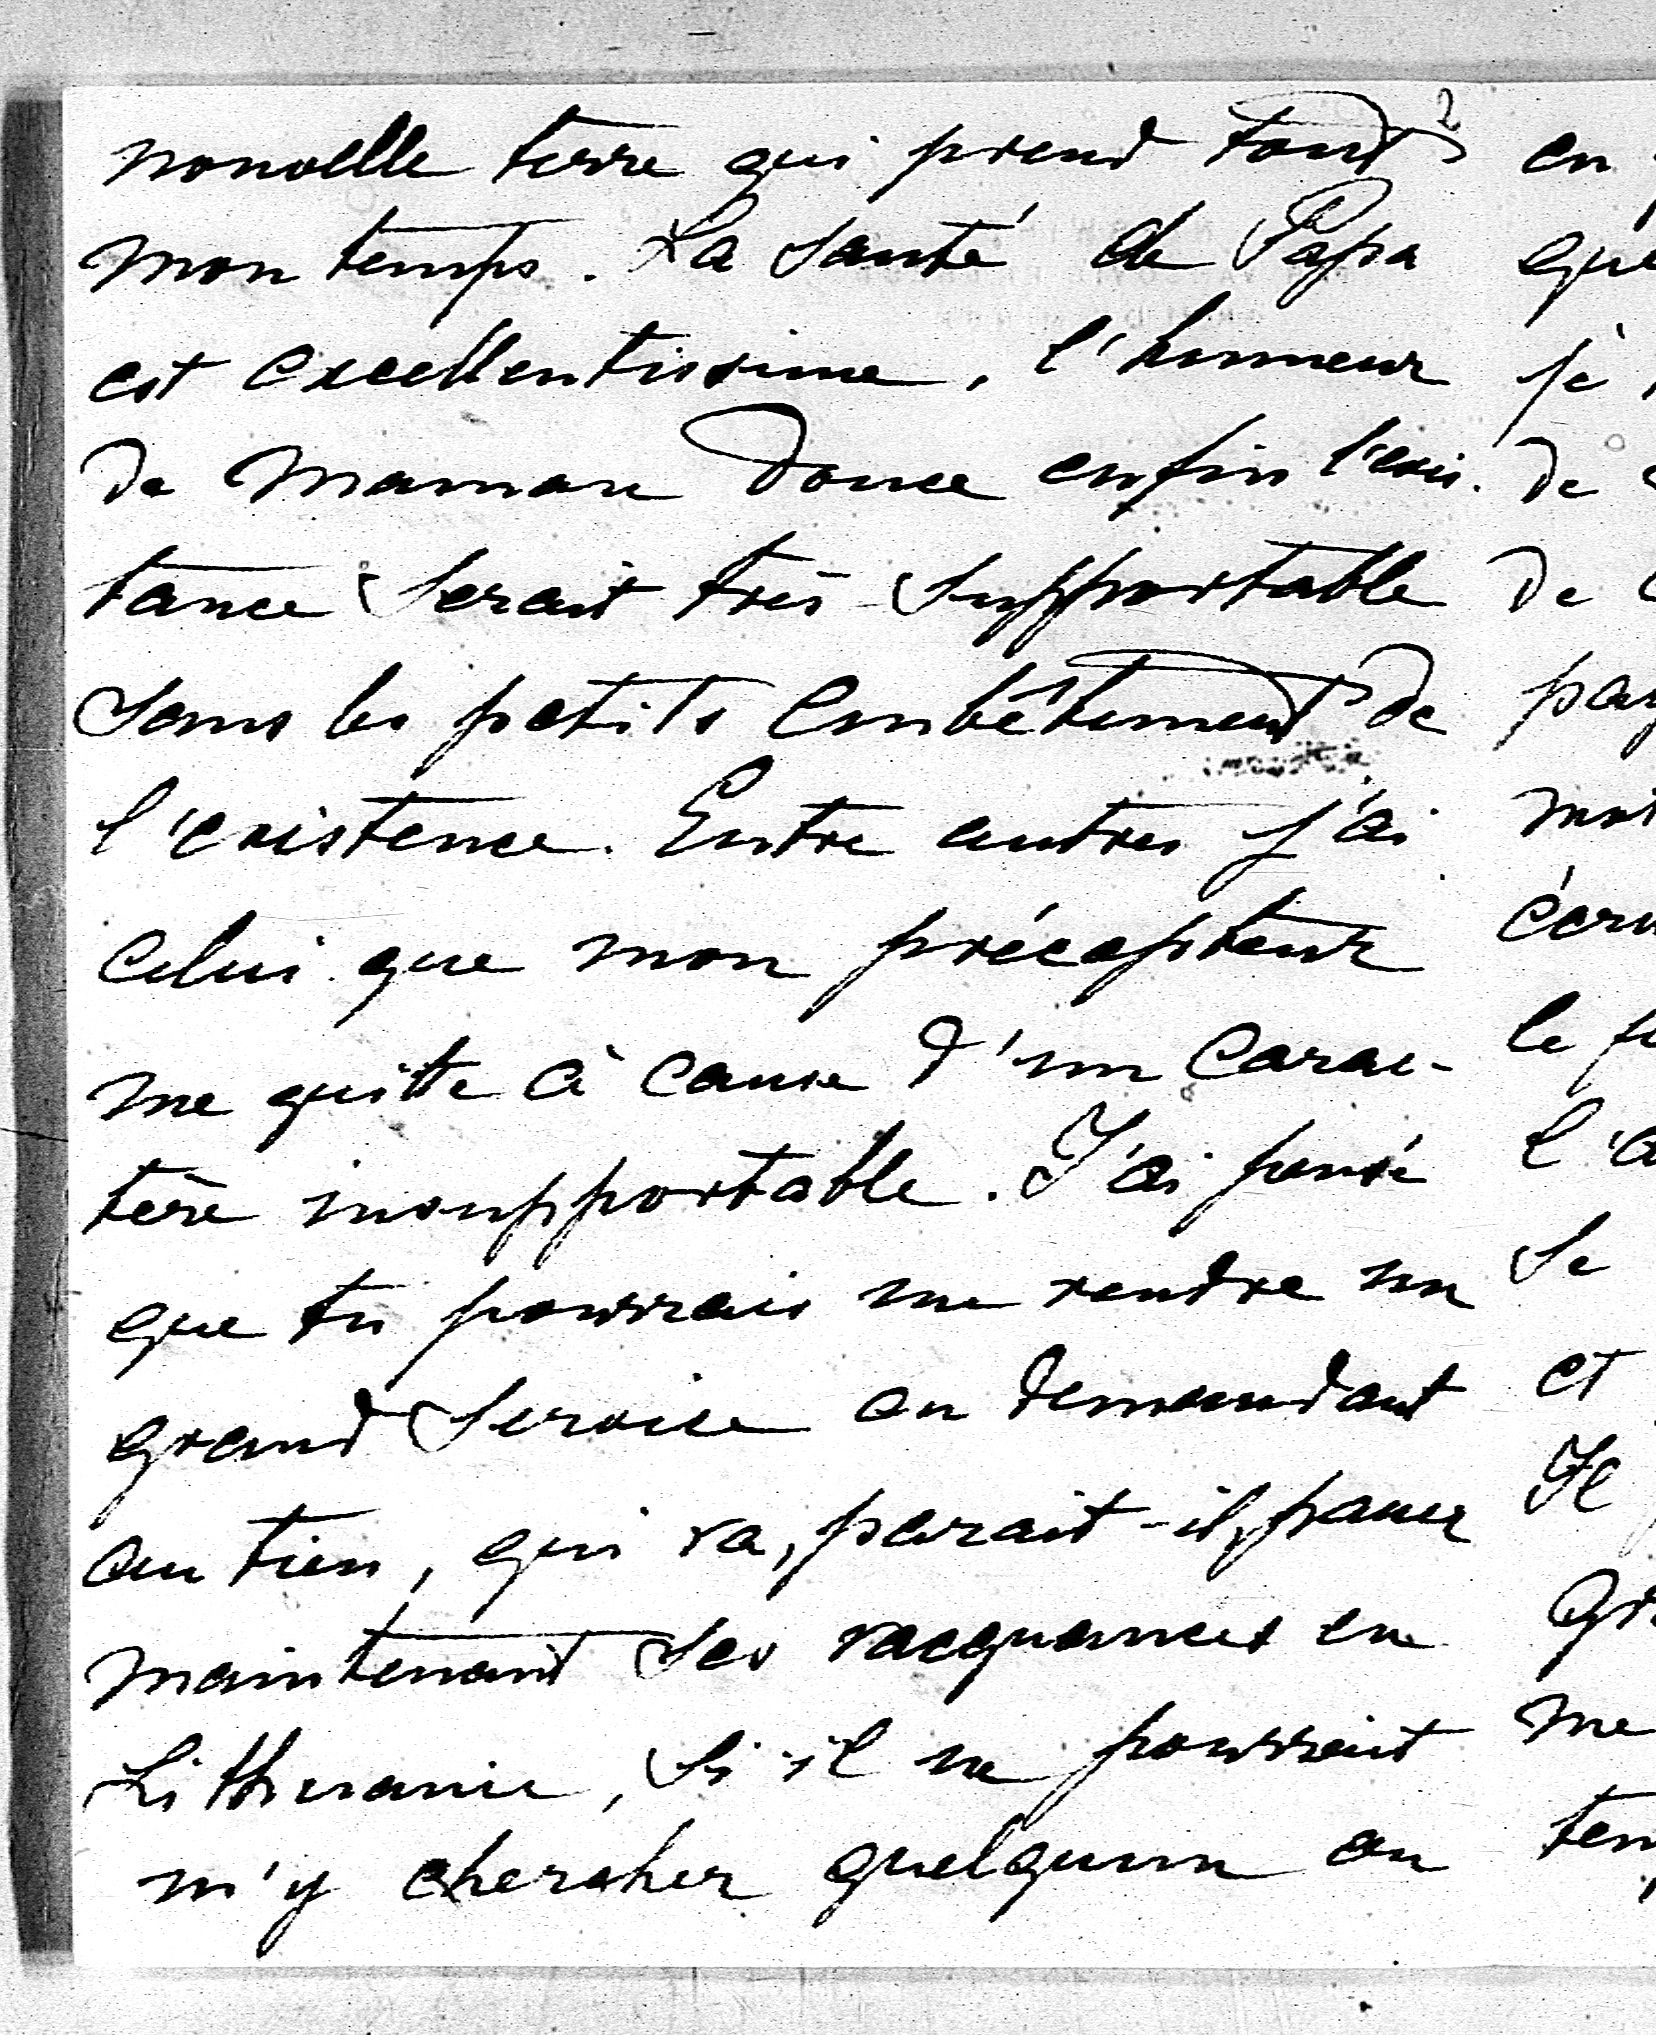 2
nouvelle terre qui prend tout
mon temps. La santé de Papa
est excellentissime, l'humeur
de Maman douce enfin l'exis-
tance serait très supportable
sans les petits embêtement de
l'existence. Entre autres j'ai
celui que mon précepteur
me quitte à cause d'un carac-
tère insupportable. J'ai pensé
que tu pourrais me rendre un
grand service en demandant
au tien, qui va, parait-il, passer
maintenant ses vacquances en
Lithuanie, si il ne pourrait
m'y chercher quelquun ou
en
que
je
de
de
pay
moi
écru
le
l'a
se
et
Il
gra
me
tem